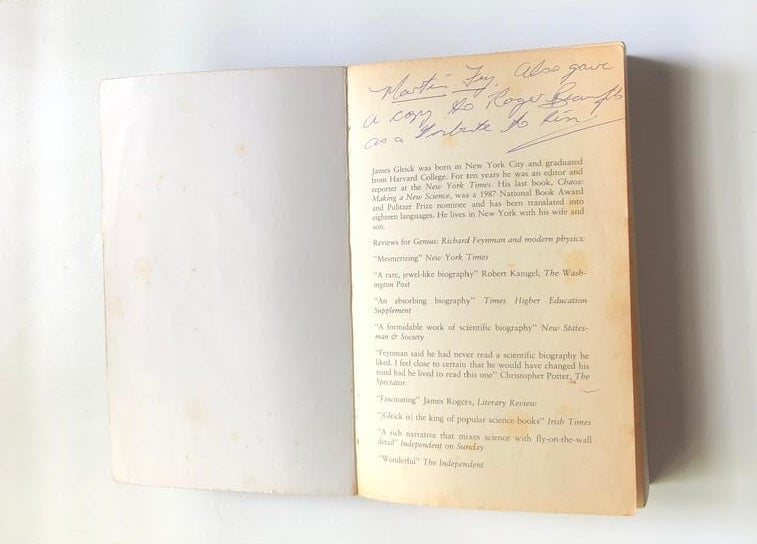 Martin Fry. Also gave
a copy to Roger
as a tribute to him
James Gleick was born in New York City and graduated
from Harvard College. For ten years he was an editor and
reporter at the New York Times. His last book, Chaos:
Making a New Science, was a 1987 National Book Award
and Pulitzer Prize nominee and has been translated into
eighteen languages. He lives in New York with his wife and
son.
Reviews for Genius: Richard Feynman and modern physics:
"Mesmerizing" New York Times
"A rare, jewel-like biography" Robert Kanigel, The Wash-
ington Post
"An absorbing biography" Times Higher Education
Supplement
"A formidable work of scientific biography" New States-
man & Society
"Feynman said he had never read a scientific biography he
liked. I feel close to certain that he would have changed his
mind had he lived to read this one" Christopher Potter, The
Spectator
"Fascinating" James Rogers, Literary Review
"[Gleick is] the king of popular science books" Irish Times
"A rich narrative that mixes science with fly-on-the-wall
detail" Independent on Sunday
"Wonderful" The Independent